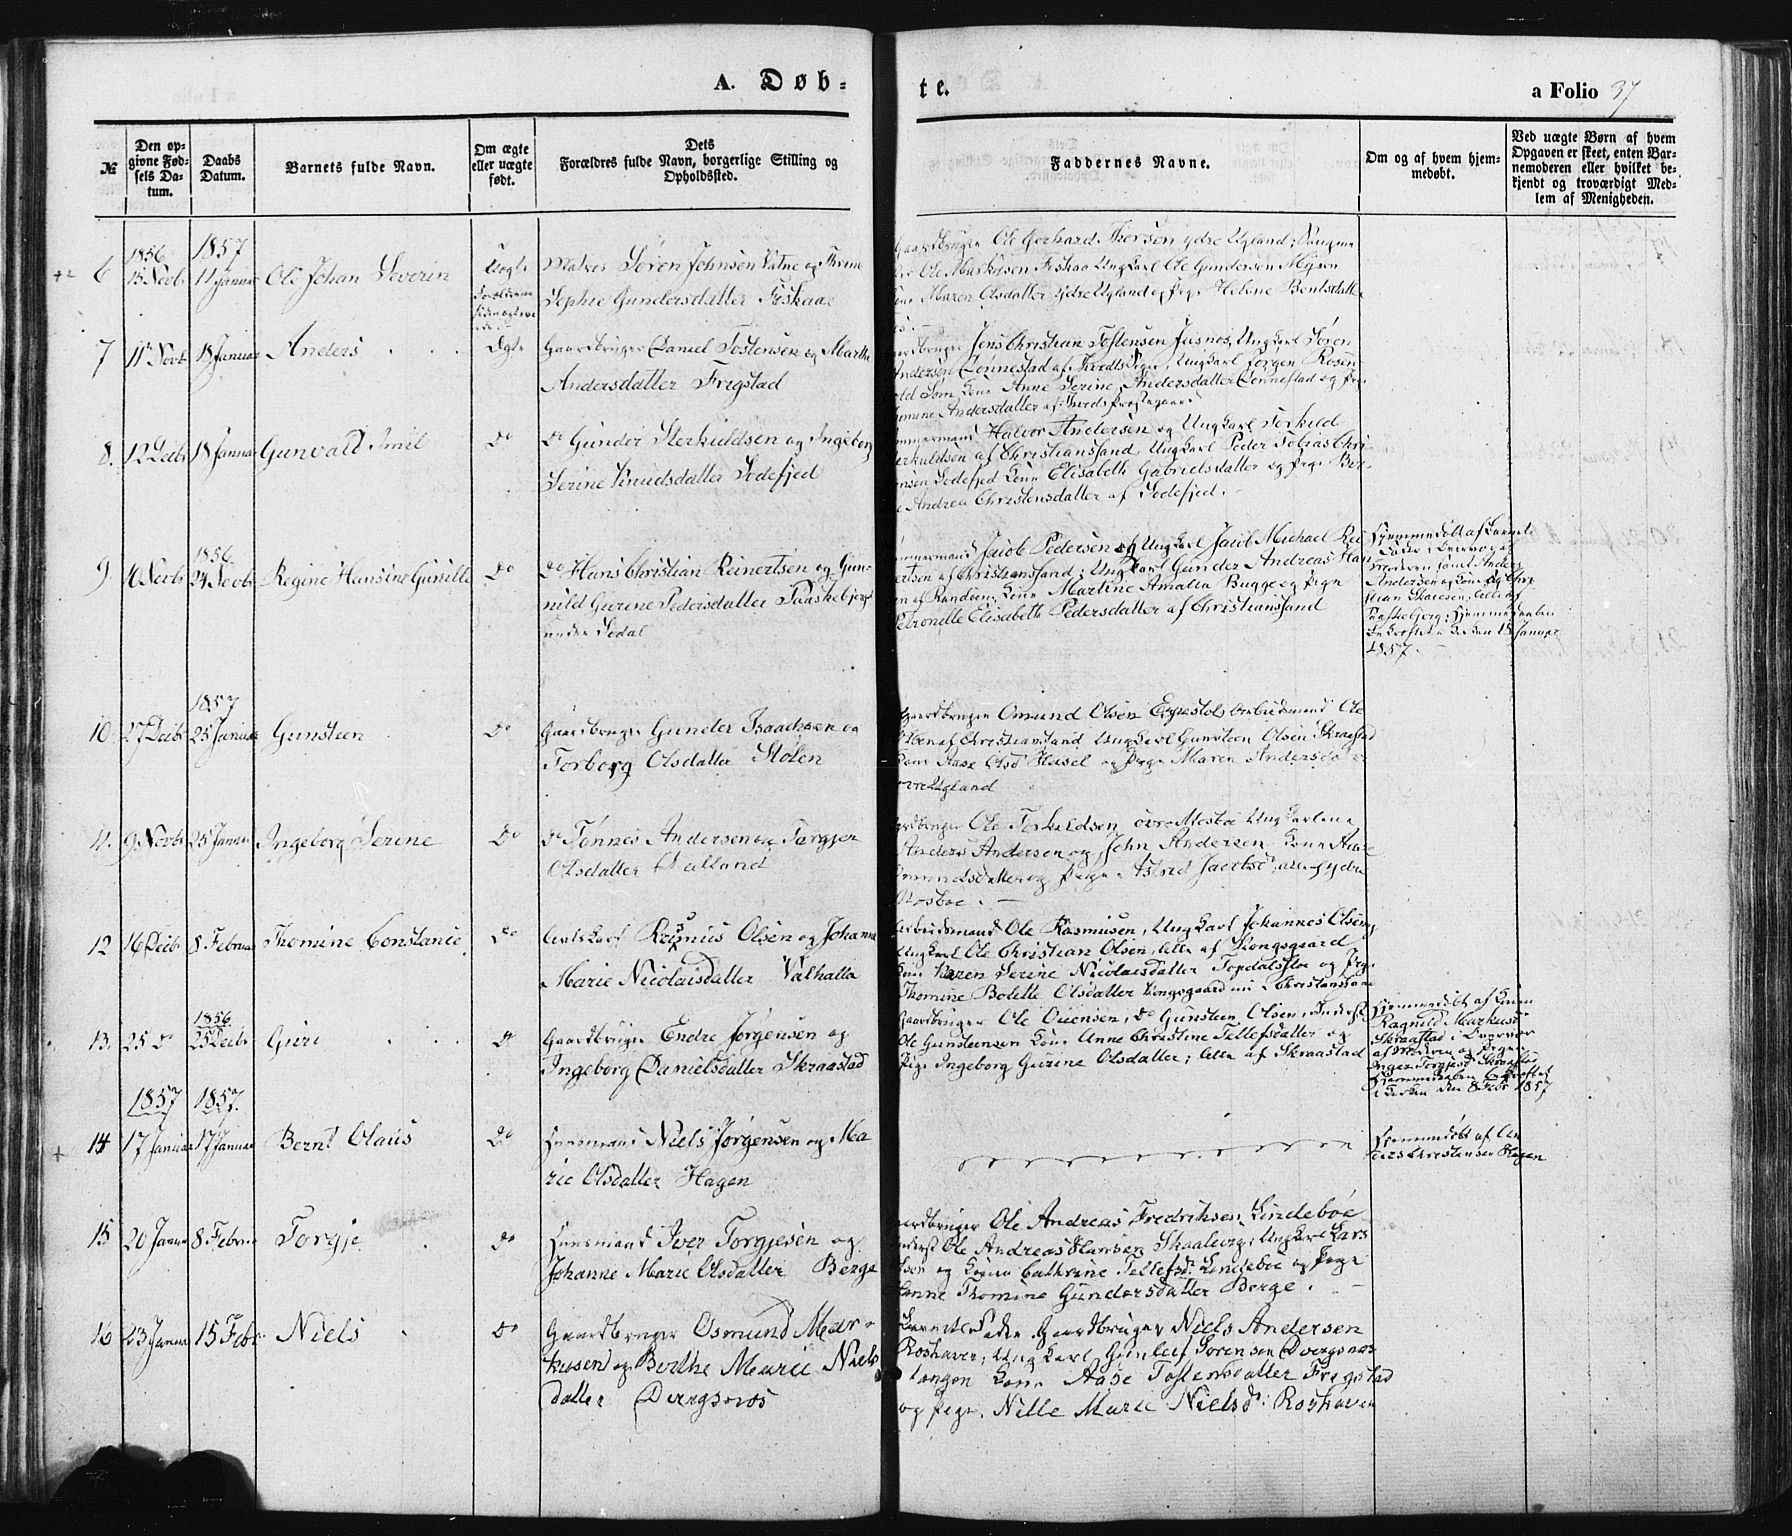 A. Døb-
te.
a Folio 37
№
Den op-
givne Fød-
sels Da-
tum.
Daabs
Datum.
Barnets fulde Navn.
Om ægte
eller uægte
født.
Dets
Forældres fulde Navn, borgerlige Stilling og
Opholdssted.
Faddernes Navne.
Om og af hvem hjem-
medøbt.
Ved uægte Børn af hvem
Opgaven er skeet, enten Bar-
nemoderen eller hvilket be-
kjendt og troværdigt Med-
lem af Menigheden.
1856 1857
6 15 Novb 11 Januar Ole Johan Severin Uægte Matros Søren Johnsen Vatne og Thrine
Sophie Gundersdatter Fiskaae
Gaardbruger Ole Gerhard Thorsen ydre Ugland;
Ole Markusen Fiskaa Ungkarl Ole Gundersen Mysen
Kone Maren Olsdatter ydre Ugland og Pige Helene Bentsdatter
7 11 Novb 18 Januar Anders Ægte Gaardbruger Daniel Tostensen og Marthe
Andersdatter Frigstad
Jens Christian Tostensen Jusnes, Ungkarl Søren
Andersen Lønnestad af Tveds Sogn, Ungkarl Jørgen Rosen
Kone Anne Serine Andersdatter Lønnestad og Pige
Andersdatter af Tveds Prostegaard
8. 12 Decb 18 Januar Gunvald Emil Do Do Gunder Sterkuldsen og Ingeborg
Serine Knudsdatter Sodefjed
Halvor Andersen og Ungkarl Torkuld
Sterkuldsen af Christianssand, Ungkarl Peder Tobias Chri-
Sodefjed Kone Elisabeth Gabrielsdatter og Pige Ber-
Andrea Christensdatter af Sodefjed.
1856
9 10 Novb 24 Novb Regine Hansine Gunille Do Do Hans Christian Reinertsen og Gun-
nild Gurine Pedersdatter Paaskebjerg
under Sodal
Jacob Pedersen og Ungkarl Jacob Michael Rei
ertsen af Christianssand; Ungkarl Gunder Andreas Han
af Randøen, Kone Martine Amalia Bugge og Pige
Petronelle Elisabeth Pedersdatter af Christianssand
Hjemmedøbt af Barnets
Fader i Overvær af
Moderen samt Anders
Andersen og Kone og Chri
stian Skaiesen, alle af
Paaskebjerg; Hjemmedaaben
bekræftet i Kirken 18 Januar
1857.
1857
10. 27 Decb 25 Januar Gunsteen Do Gaardbruger Gunder Isaachsen og
Torborg Olsdatter Stølen
Gaardbruger Omund Olsen Egestøl, Arbeidsmand Ole
Olsen af Christianssand Ungkarl Gunsteen Olsen Skraastad
Kone Aase Olsd Heisel og Pige Maren Andersd
øvre Ugland
11. 9 Novb 25 Januar Ingeborg Serine Do Do Tønnes Andersen og Torgjer
Olsdatter Dalland
Gaardbruger Ole Torkuldsen øvre Mosbø Ungkarlene
Anders Andersen og John Andersen Kone Aase
Omundsdatter og Pige Astrid Jacobsd, alle af ydre
Mosbøe.
12 16 Decb 8 Februar Thomine Constance Do Rasmus Olsen og Johanne
Marie Nicolaisdatter Valhalla
Arbeidsmand Ole Rasmusen, Ungkarl Johannes Olsen,
Ungkarl Ole Christian Olsen, alle af Kongsgaard
Kone Karen Serine Nicolaisdatter Topdalsfloe og Pige
Thomine Bolette Olsdatter Kongsgaard
1856
13. 25 Do 25 Decb Guri Do Gaardbruger Endre Jørgensen og
Ingeborg Danielsdatter Skraastad
Gaardbruger Ole Ouensen, Do Gunsteen Olsen, Inderst
Ole Gunsteensen Kone Anne Christine Tellefsdatter og
Pige Ingeborg Gurine Olsdatter; alle af Skraastad
Hjemmedøbt af Konen
Ragnild Markusd
Skraastad i Overvær
af Moderen og Pigen
Inger Torgjesd Skraastad
Hjemmedaaben bekræftet
i Kirken den 8 Febr 1857
1857 1857.
14 17 Januar 17 Januar Bernt Olaus Do Huusmand Niels Jørgensen og Ma
rie Olsdatter Hagen
Hjemmedøbt af An
ders Christensen Hagen
15 20 Januar 8 Februar Torgje Do Huusmand Iver Torgjesen og
Johanne Marie Olsdatter Berge
Gaardbruger Ole Andreas Fredriksen Lindebøe
Inderst Ole Andreas Hansen Skaalevig; Ungkarl Lars
Olsen og Kone Cathrine Tellefsd. Lindebøe og Pige
Hanne Thomine Gundersdatter Berge.
16 23 Januar 15 Febr Niels Do Gaardbruger Osmund Mar-
kusen og Berthe Marie Niels
datter Dvergsnæs
Barnets Fader Gaardbruger Niels Andersen
Roshaven; Ungkarl Gunleif Sørensen Dvergsnæs
tangen Kone Aase Tostensdatter Frigstad
og Pige Nille Marie Nielsd: Roshaven